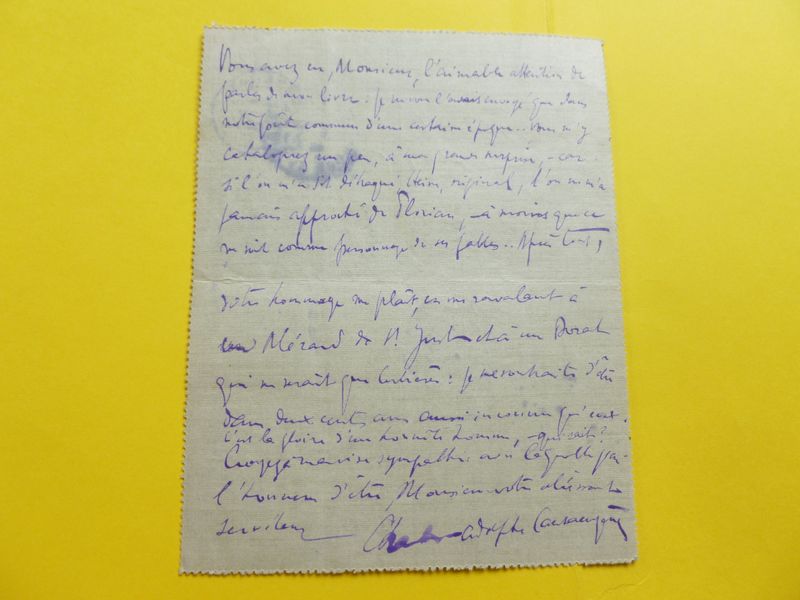 Vous avez eu, Monsieur, l'aimable attention de
parler de mon livre : je ne vous l'avais envoyé que dans
notre goût commun d'une certaine époque.. Vous m'y
cataloguez un peu, à ma grande surprise, - car
si l'on m'a dit détraqué, original, l'on ne m'a
jamais approché de Florian, - à moins que ce
ne soit comme personnage de ses fables.. Après tout,
votre hommage me plaît, en me ravalant à
un Mérard de St Just et à un Dorat
qui ne serait que : je me souhaite d'être
dans deux cents ans aussi inconnu qu'eux.
c'est la gloire d'un honnête homme, - qui sait ?
sympathie avec laquelle j'ai
l'honneur d'être, Monsieur, votre obéissant
serviteur Adolphe